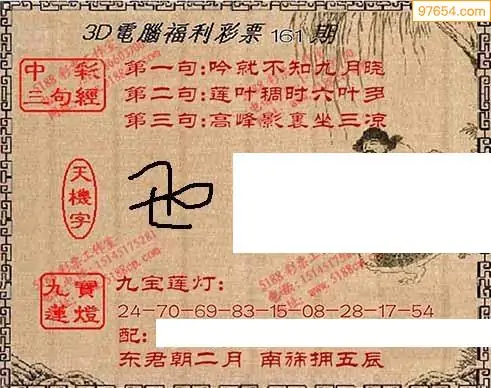 97654.com
3D電腦福利彩票161期
中彩
三句經
第一句:吟就不知九月晓
第二句:莲叶稠时六叶多
第三句:高峰影裏坐三凉
天機字
九寶
蓮燈
九宝莲灯:
24-70-69-83-15-08-28-17-54
配:
东君朝二月 南旆拥五辰
5188 彩票工作室